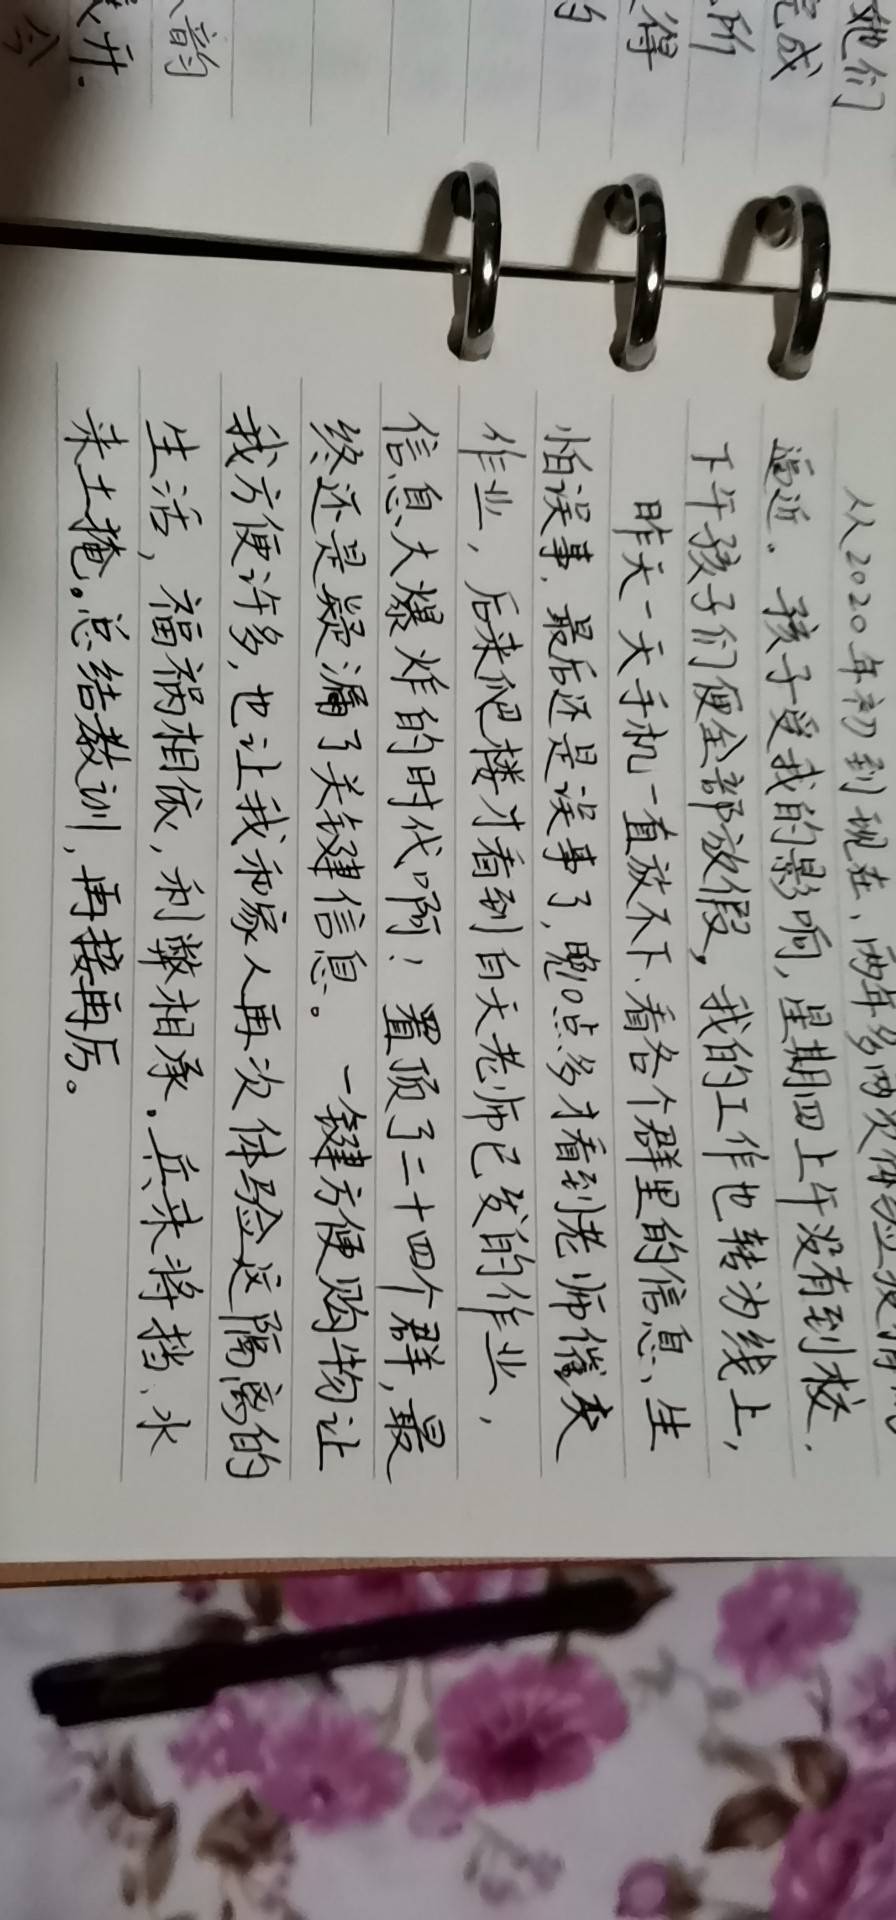 她们
完成
所
得
的
韵
升.
今
从2020年初到现在、两年多两次体验疫情
逼近。孩子受我的影响,星期四上午没有到校.
下午孩子们便全部放假,我的工作也转为线上,
昨天一天手机一直放不下、看各个群里的信息、生
怕误事.最后还是误事了,晚10点多才看到老师催交
作业,后来爬楼才看到白天老师已发的作业,
信息大爆炸的时代啊!置顶了二十四个群,最
终还是疑漏了关键信息。一键方便购物让
我方便许多,也让我和家人再次体验这隔离的
生活,福祸相依,利弊相承.兵来将挡、水
来土掩。总结教训,再接再厉。